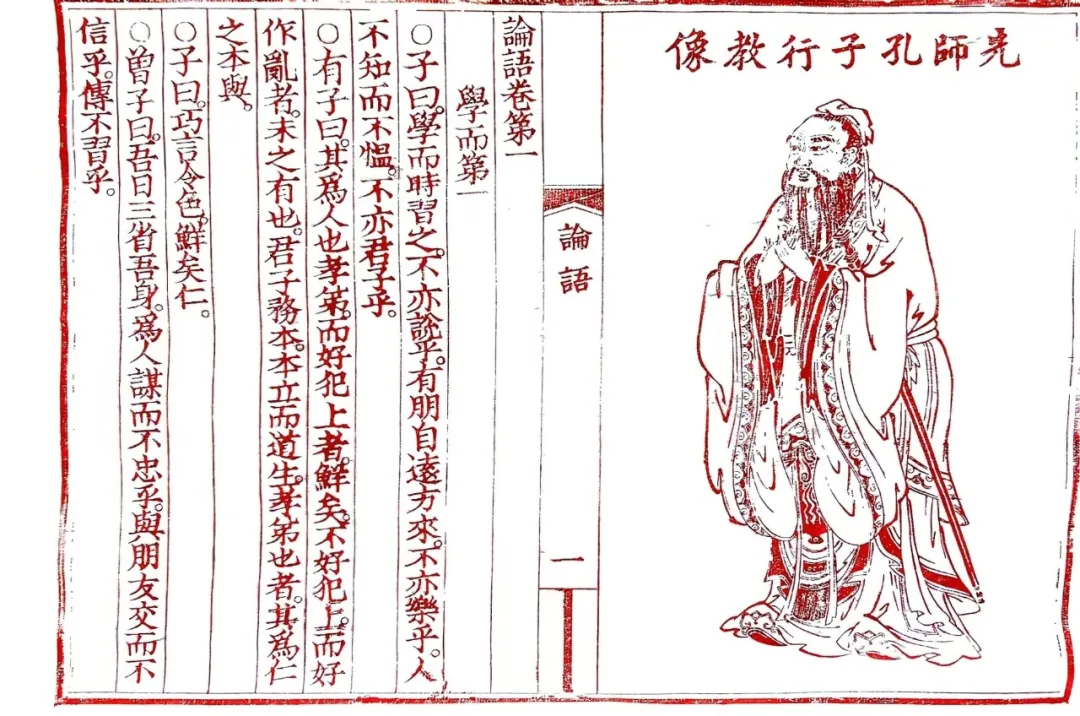 先師孔子行教像
論語
一
論語卷第一
學而第一
○子曰。學而時習之。不亦說乎。有朋自遠方來。不亦樂乎。人
不知而不慍。不亦君子乎。
○有子曰。其為人也孝弟。而好犯上者。鮮矣。不好犯上。而好
作亂者。未之有也。君子務本。本立而道生。孝弟也者。其為仁
之本與。
○子曰。巧言令色。鮮矣仁。
○曾子曰。吾日三省吾身。為人謀而不忠乎。與朋友交而不
信乎。傳不習乎。